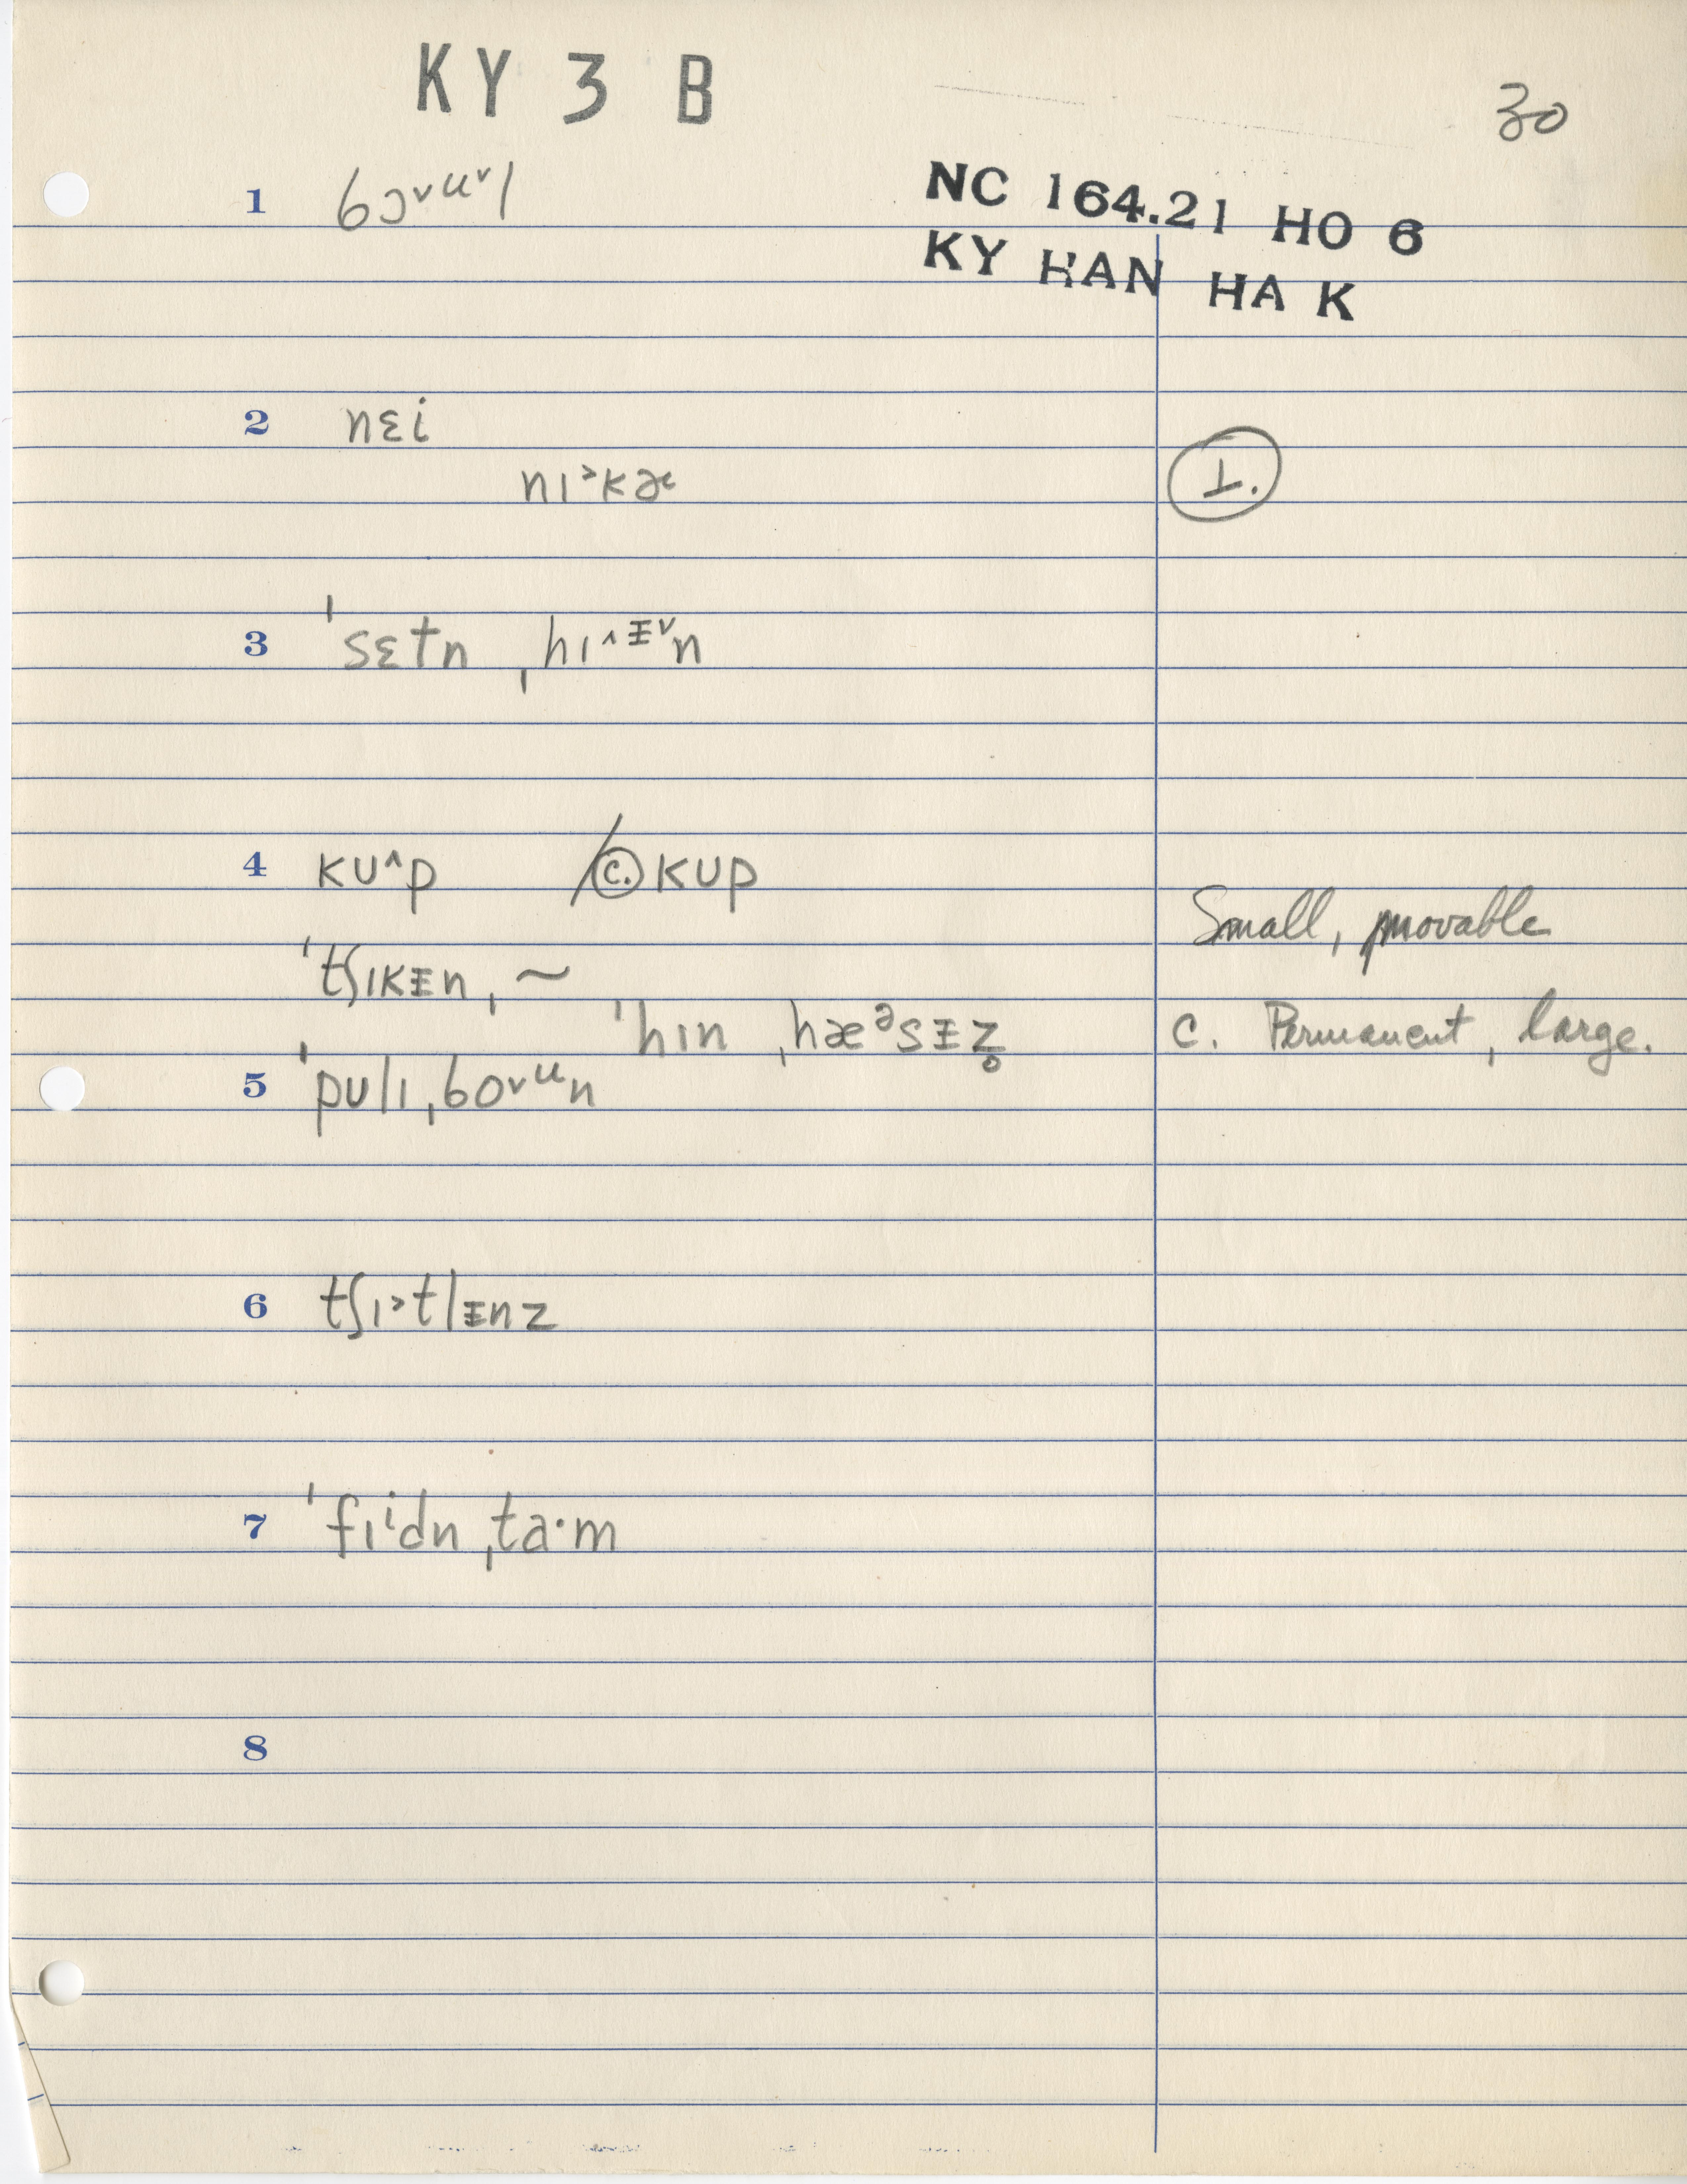 KY 3 B
30
NC 164.21 HO 6
KY HAN HA K
1 bɔ˅ᵘ˅l
2 nɛi
nɪ˃kə
1.
3 ˈsɛtn ˌhɪ˄ᵻ˅n
4 kʊ˄p /c. kʊp
Small, movable
ˈtʃɪkᵻn, ~
ˈhɪn ˌhæᵊsᵻz̥
c. Permanent, large.
5 ˈpʊlɪˌbo˅ᵘn
6 tʃɪ˃tlᵻnz
7 ˈfɪⁱdnˌta·m
8